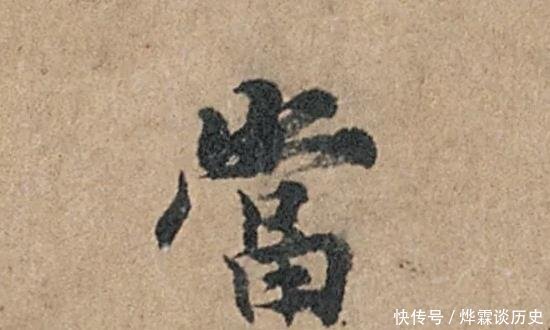 當
快传号/烨霖谈历史